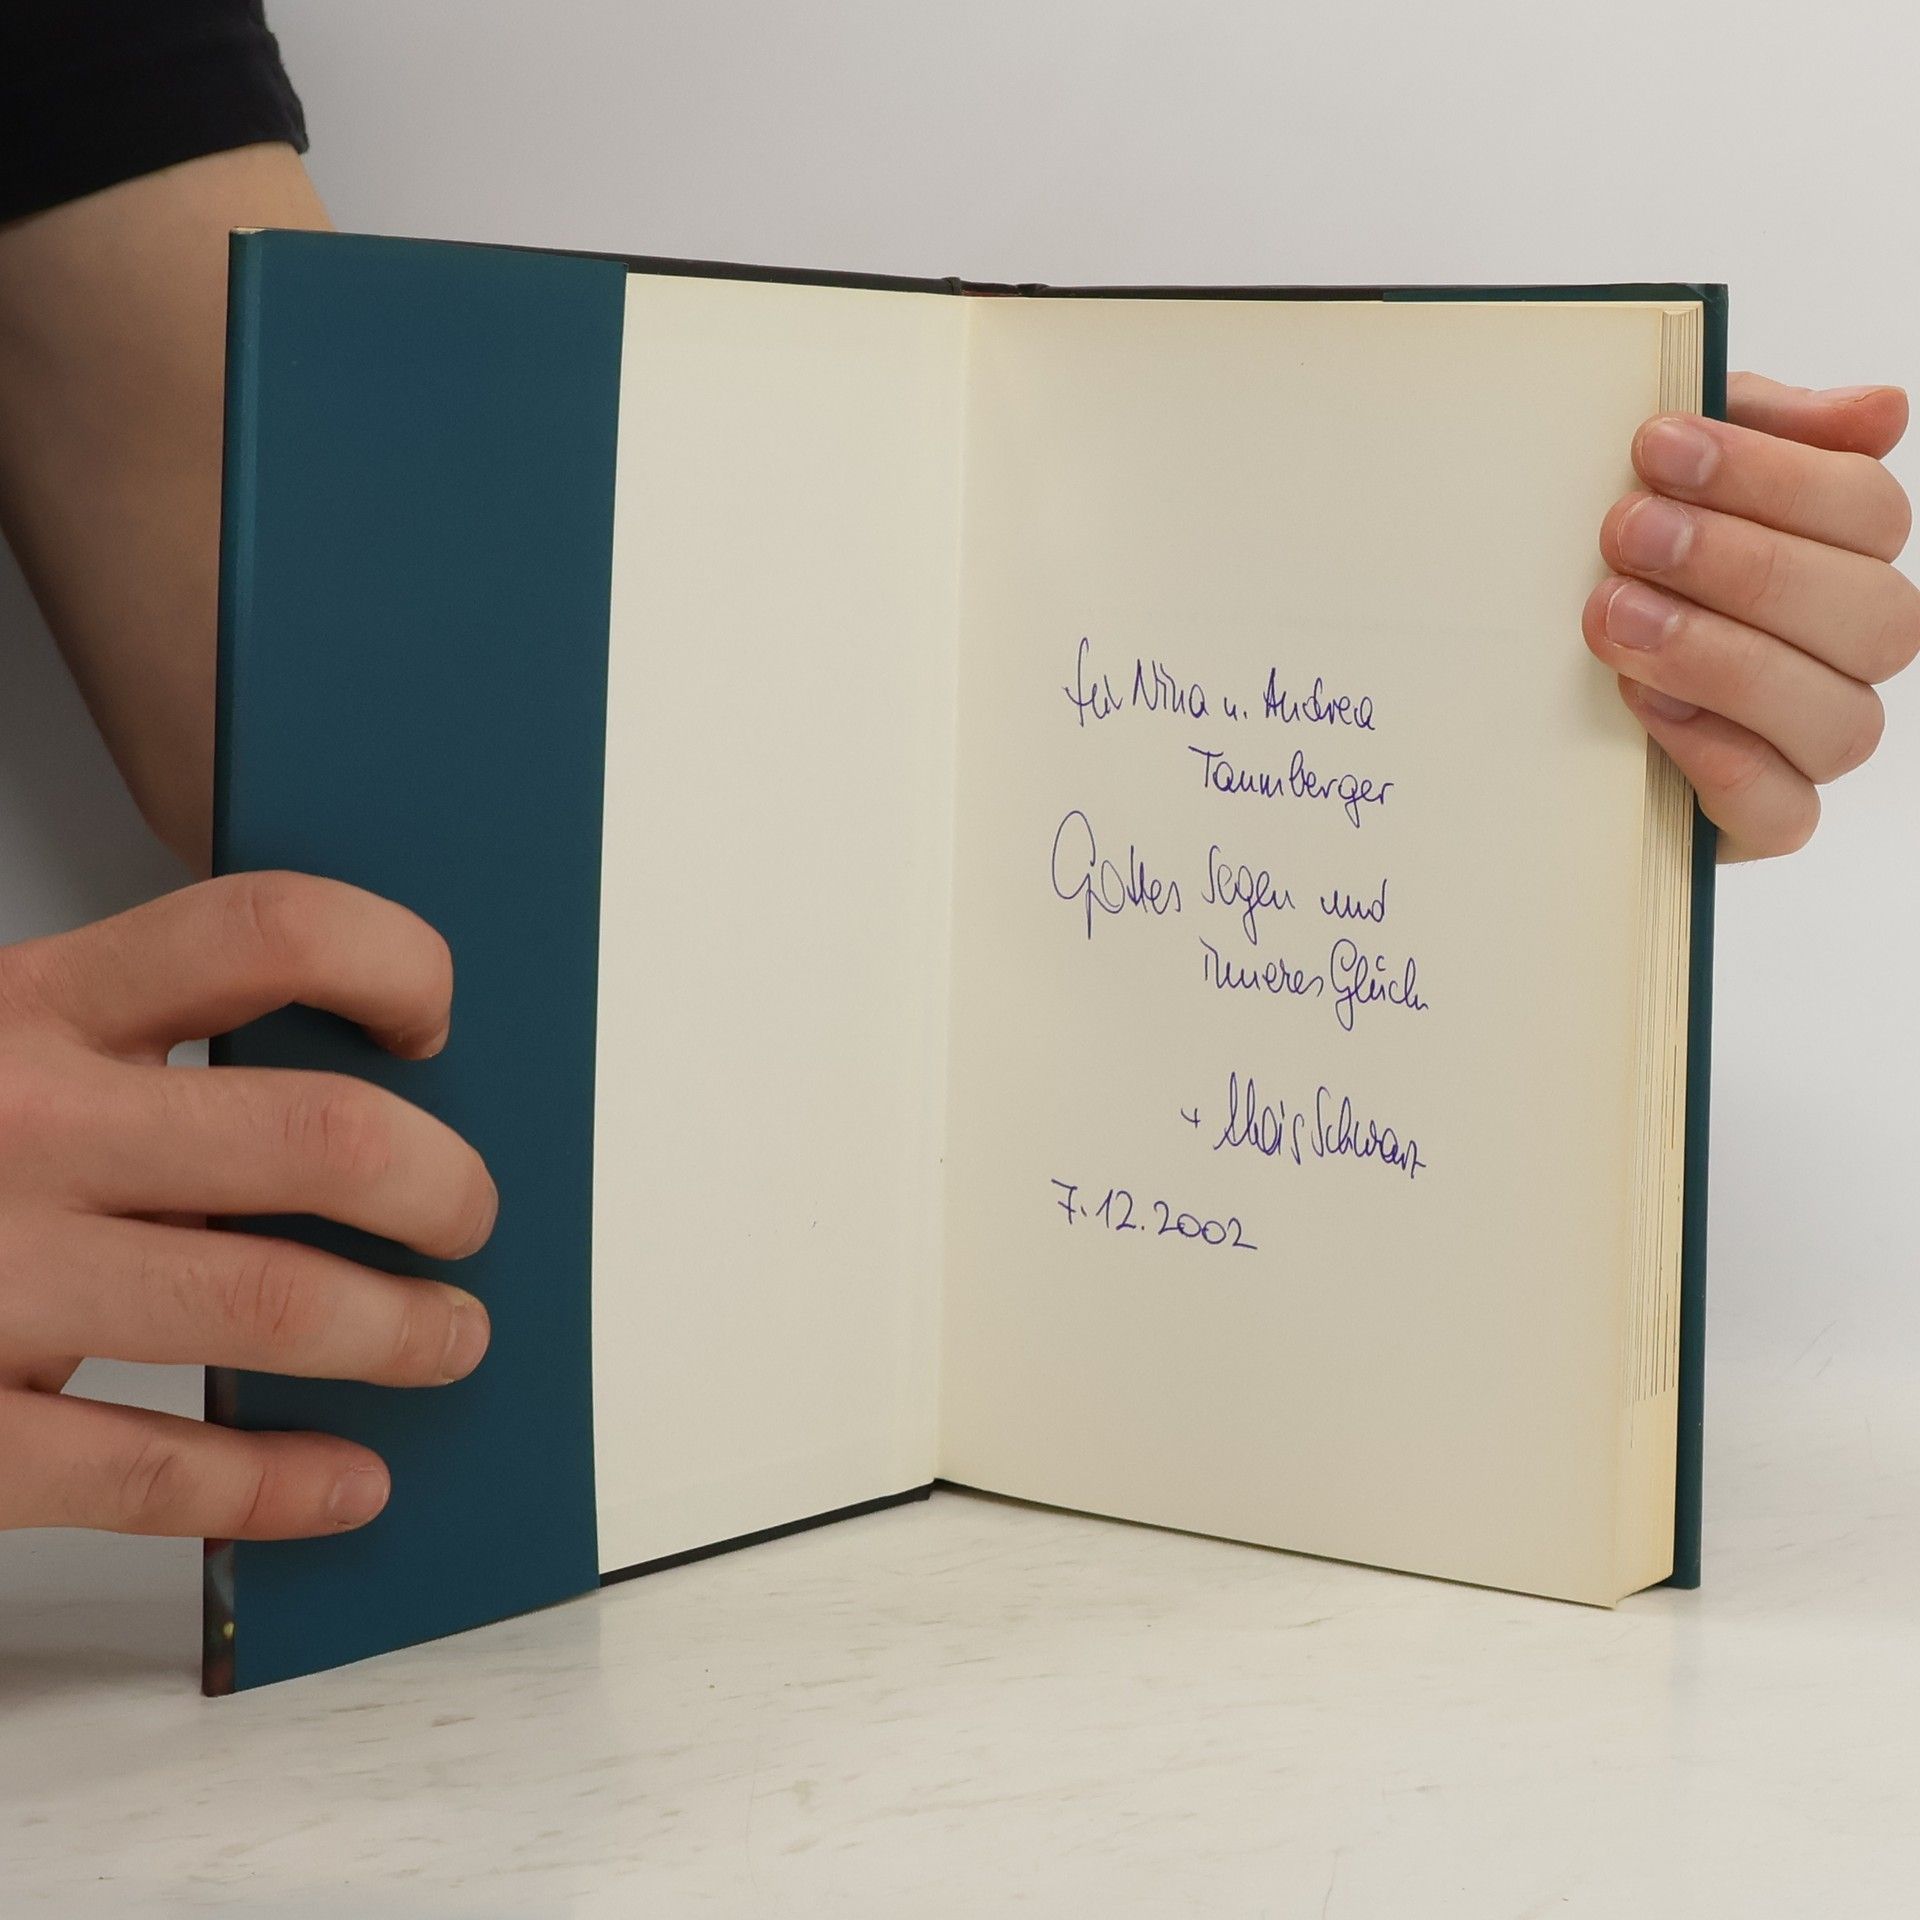 für Nina u. Andrea
Tannberger
Gottes Segen und
inneres Glück
+ Alois Schwarz
7.12.2002